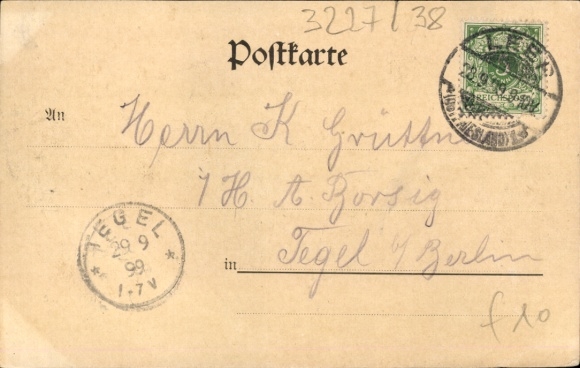 3227/38
Postkarte
LEER
28.9.99
REICHSPOST
(OSTFRIESLAND)
An
Herrn K Grüttner
A. Borsig
TEGEL
29 9
99
1-7V
in
Tegel b/ Berlin
f 10